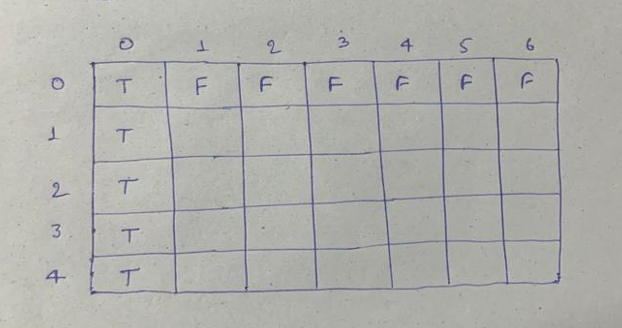 0 1 2 3 4 5 6
0 T F F F F F F
1 T
2 T
3 T
4 T